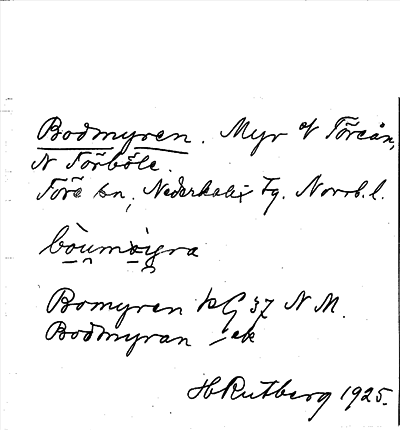 Bodmyren. Myr v Töreån,
N Törböle.
Töre sn, Nederkalix Tg. Norrb. l.
bòumǫi̯gra
Bomyren kG 37 N M.
Bodmyran ek
HRutberg 1925.